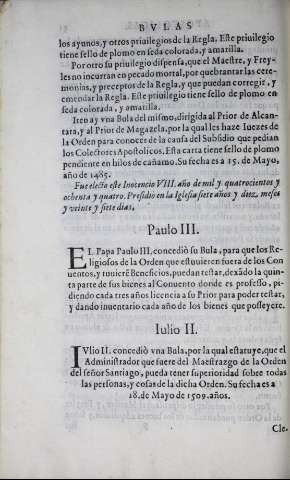 BVLAS
los ayunos, y otros priuilegios de la Regla. Este priuilegio
tiene sello de plomo en seda colorada, y amarilla.
Por otro su priuilegio dispensa, que el Maestre, y Frey-
les no incurran en pecado mortal, por quebrantar las cere-
monias, y preceptos de la Regla, y que puedan corregir, y
emendar la Regla. Este priuilegio tiene sello de plomo en
seda colorada, y amarilla.
Iten ay vna Bula del mismo, dirigida al Prior de Alcan-
tara, y al Prior de Magazela, por la qual les haze Iuezes de
la Orden para conocer de la causa del Subsidio que pedian
los Colectores Apostolicos. Esta carta tiene sello de plomo
pendiente en hilos de cañamo. Su fecha es a 15. de Mayo,
año de 1485.
Fue electo este Inocencio VIII. año de mil y quatrocientos y
ochenta y quatro. Presidio en la Iglesia siete años y diez meses
y veinte y siete dias.
Paulo III.
EL Papa Paulo III. concediò su Bula, para que los Re-
ligiosos de la Orden que estuuieren fuera de los Con
uentos, y tuuierē Beneficios, puedan testar, dexādo la quin
ta parte de sus bienes al Conuento donde es professo, pi-
diendo cada tres años licencia a su Prior para poder testar,
y dando inuentario cada año de los bienes que posseyere.
Iulio II.
IVlio II. concediò vna Bula, por la qual estatuye, que el
Administrador que fuere del Maestrazgo de la Orden
del señor Santiago, pueda tener superioridad sobre todas
las personas, y cosas de la dicha Orden. Su fecha es a
18. de Mayo de 1509. años.
Cle-